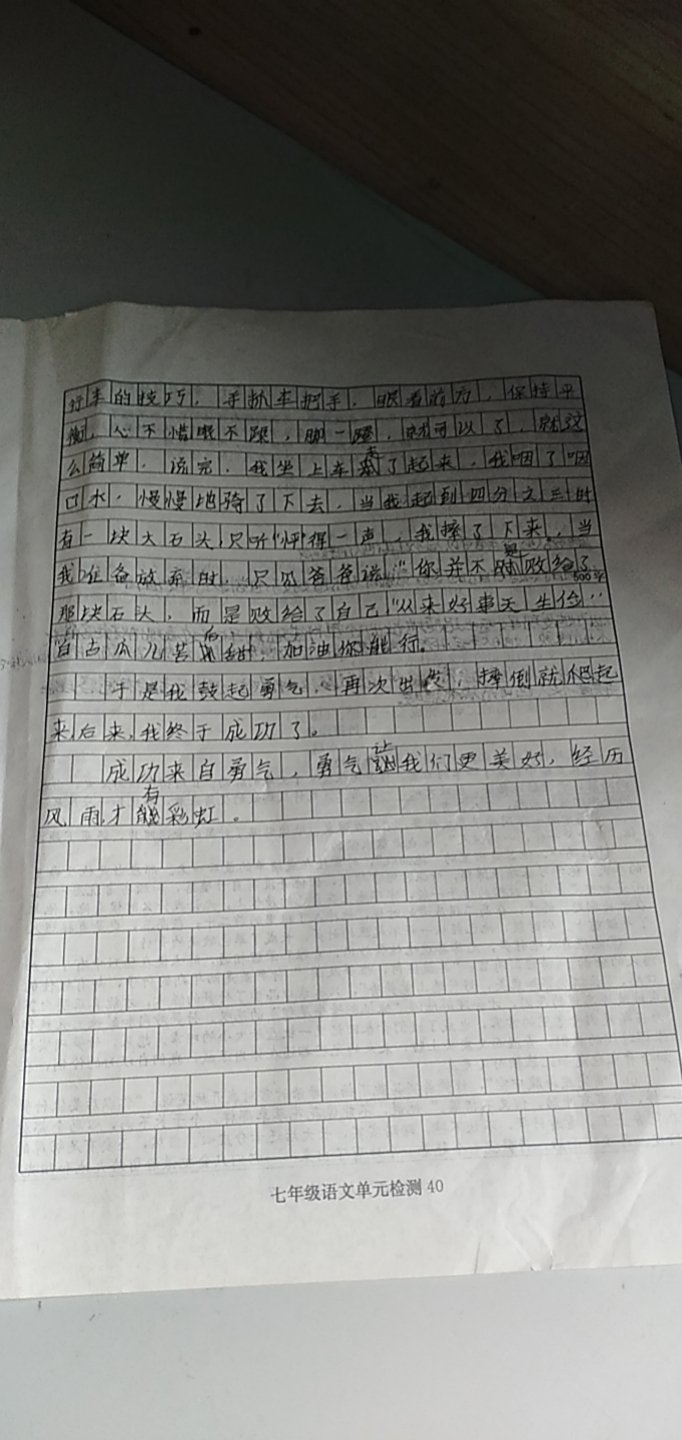 行车的技巧，手抓车把手，眼看前方，保持平
衡，心不慌眼不跟，脚一蹬，就可以了，就这
么简单，说完，我坐上车来了起来，我咽了咽
口水，慢慢地骑了下去，当我起到四分之三时
有一块大石头，只听"怦"得一声，我摔了下来，当
我准备放弃时，只见爸爸说："你并不是败给了
500字
那块石头，而是败给了自己"从来好事天生俭"
自古瓜儿苦后甜，加油你能行。
于是我鼓起勇气，再次出发，摔倒就爬起
来，后来，我终于成功了。
成功来自勇气，勇气让我们更美好，经历
风雨，才有彩虹。
七年级语文单元检测 40